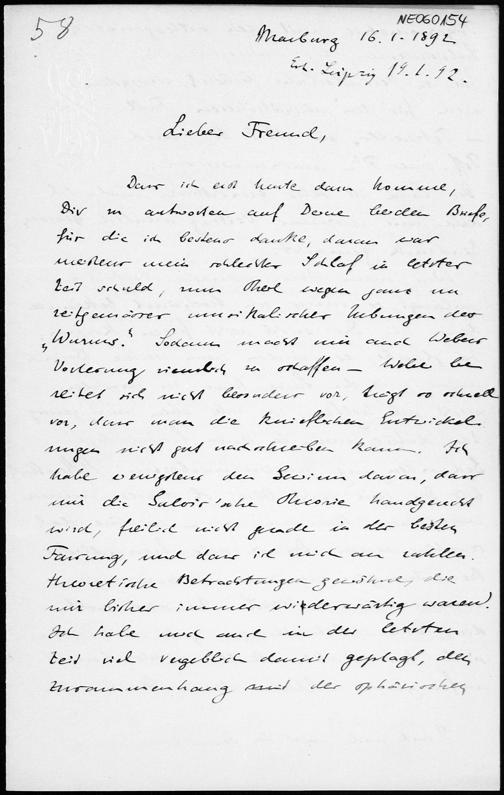 58
NE060154
Marburg 16.1.1892
Erh. Leipzig 19.1.92.
Lieber Freund,
Dass ich erst heute dazu komme,
Dir zu antworten auf Deine beiden Briefe,
für die ich bestens danke, daran war
meistens mein schlechter Schlaf in letzter
Zeit schuld, zum Theil wegen ganz un
zeitgemässer musikalischer Uebungen des
„Wurms“. Sodann macht mir auch Webers
Vorlesung ziemlich zu schaffen – Weber be
reitet sich nicht besonders vor, trägt so schnell
vor, dass man die kniefflichen Entwickel
ungen nicht gut nachschreiben kann. Ich
habe wenigstens den Gewinn davon, dass
mir die Galois'sche Theorie handgerecht
wird, freilich nicht gerade in der besten
Fassung, und dass ich mich an zahlen.
theoretische Betrachtungen gewöhne, die
mir bisher immer wiederwärtig waren.
Ich habe mich auch in der letzten
Zeit viel vergeblich damit geplagt, den
Zusammenhang mit der sphärischen